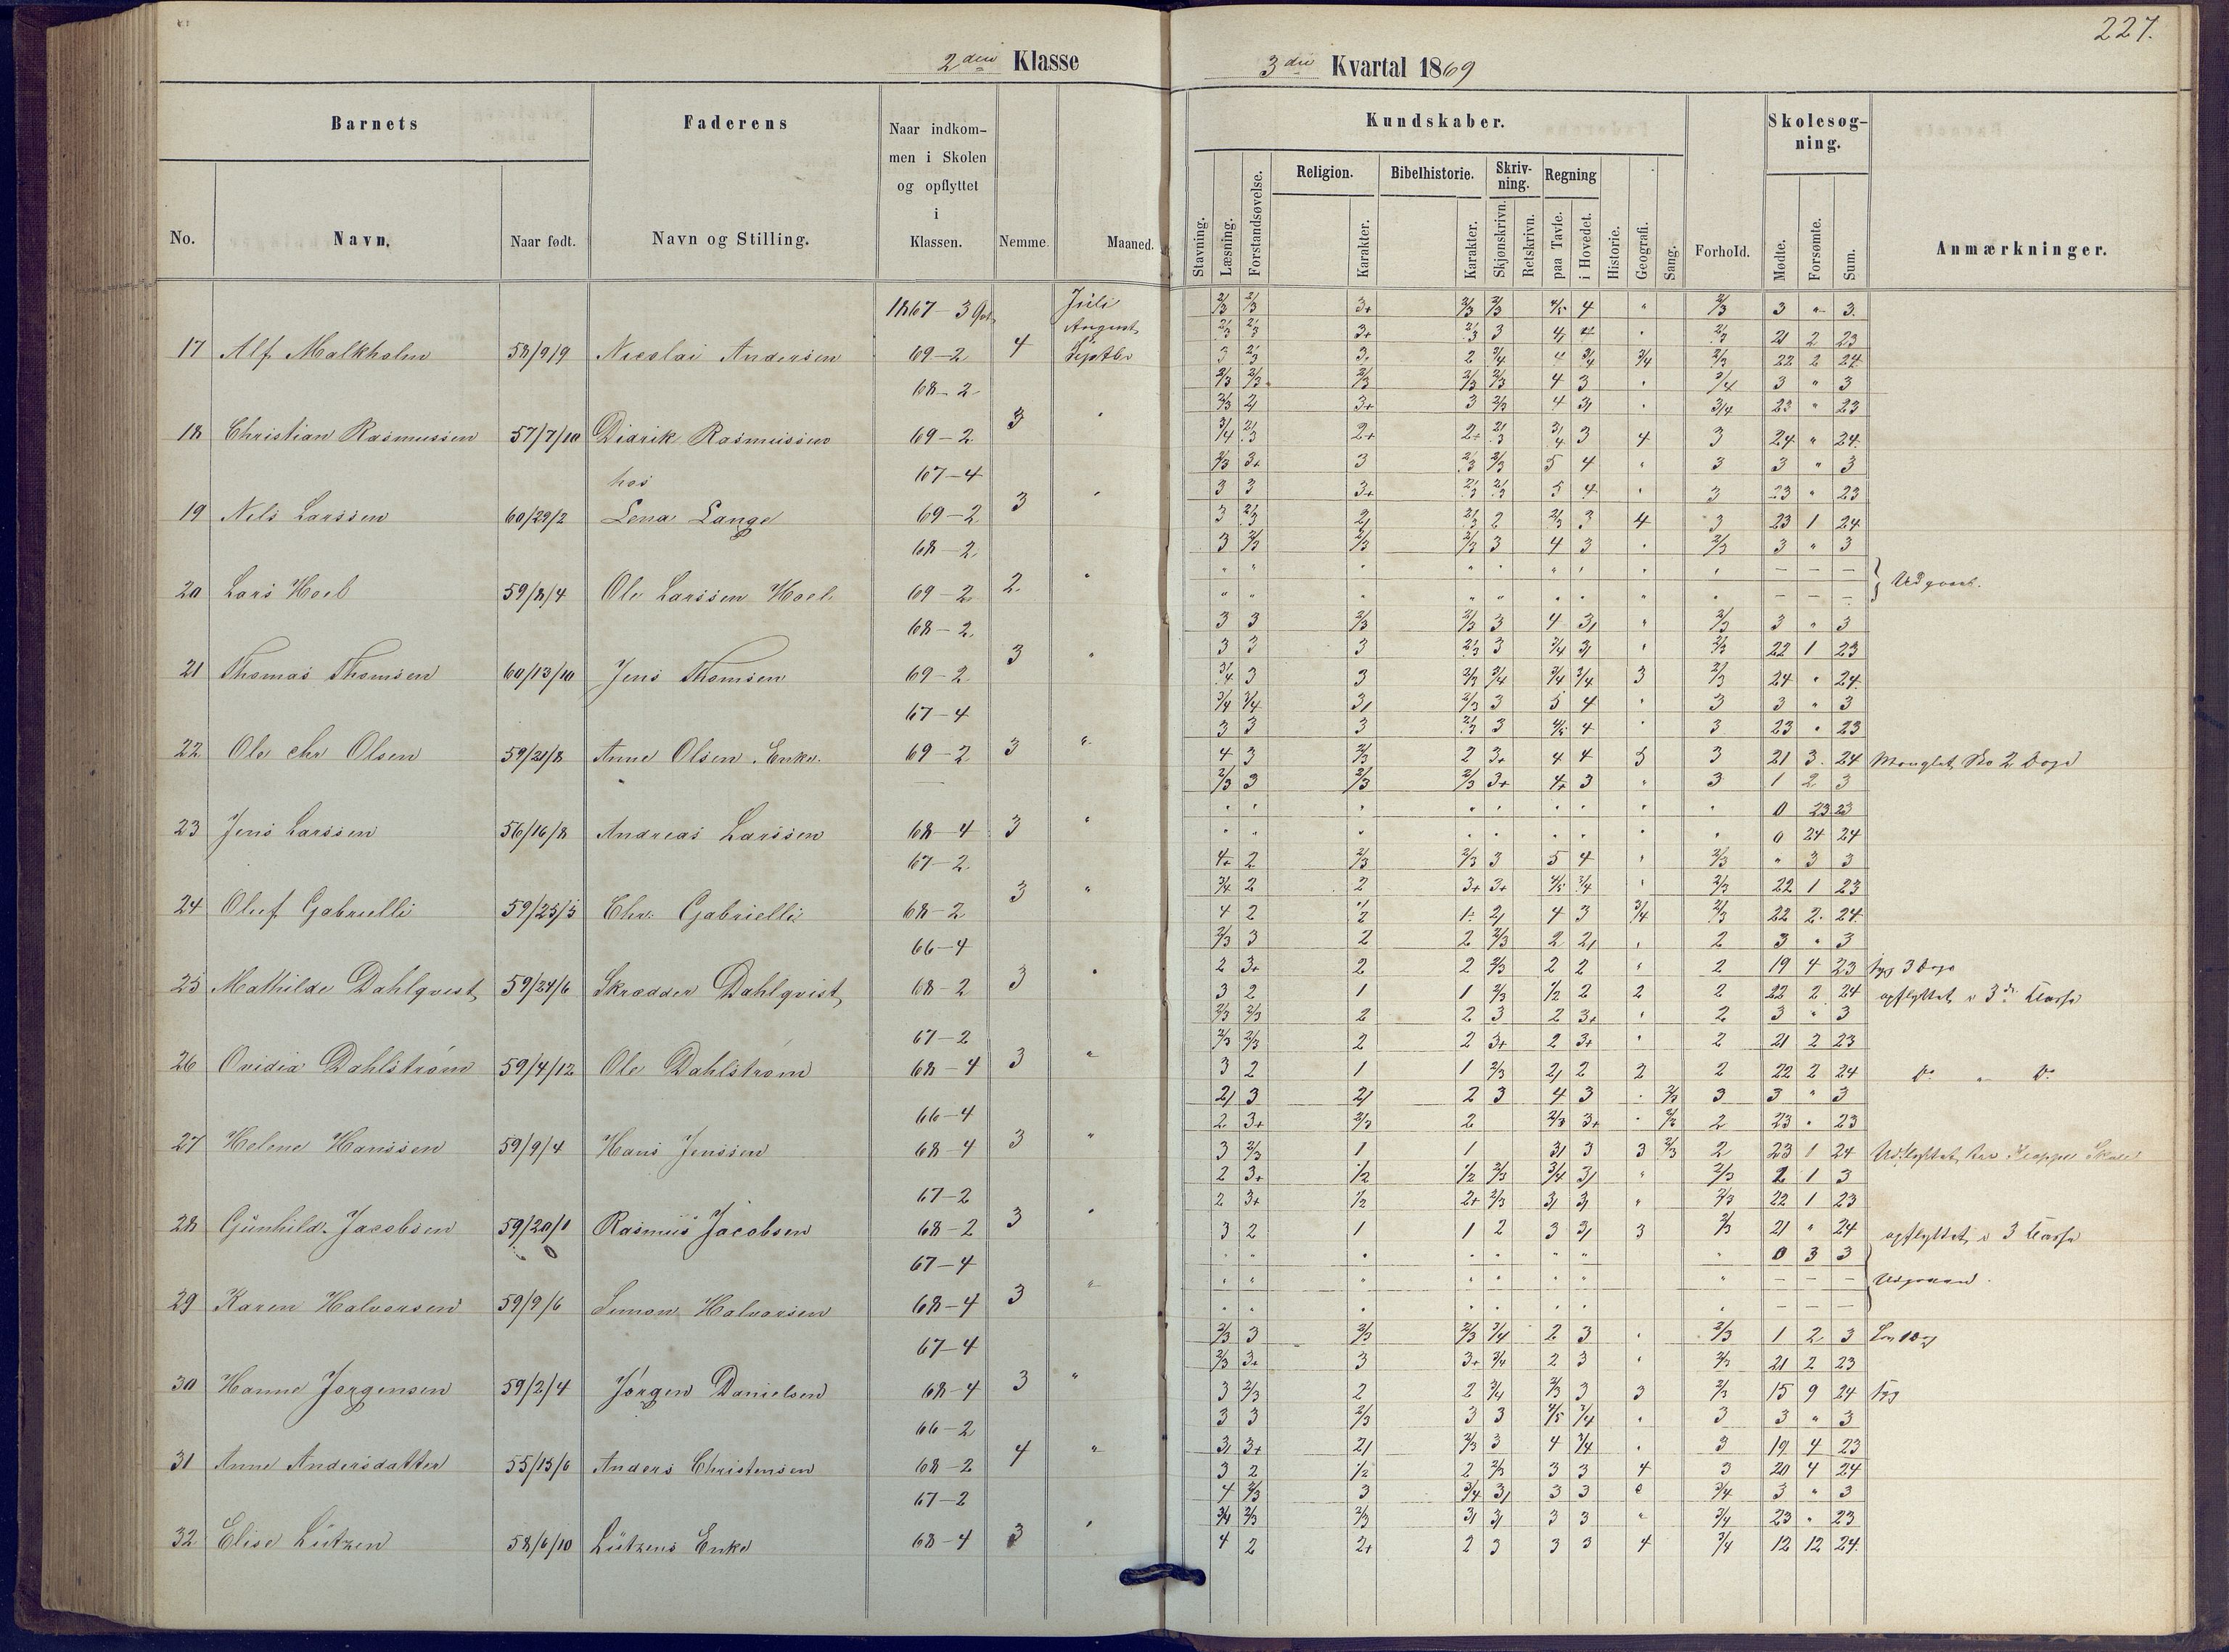 227.
2den Klasse
3die Kvartal 1869
Barnets
Faderens
Naar indkom-
men i Skolen
og opflyttet
i
Klassen.
Nemme.
Maaned.
No.
Navn.
Naar født.
Navn og Stilling.
Kundskaber.
Skolesøg-
ning.
Religion.
Bibelhistorie.
Skriv-
ning.
Regning
Stavning.
Læsning.
Forstandsøvelse.
Karakter.
Karakter.
Skjønskrivn.
Retskrivn.
paa Tavle.
i Hovedet.
Historie.
Geografi.
Sang.
Forhold.
Mødte.
Forsømte.
Sum.
Anmærkninger.
1867-3 Juli
August
17 Alf Malkholm 58/9/9 Nicolai Andersen 69-2 4 Septbr
68-2
18 Christian Rasmussen 57/7/10 Didrik Rasmussen 69-2 3 "
hos 67-4
19 Nels Larssen 60/29/2 Lena Lange 69-2 3 "
68-2
20 Lars Hoel 59/8/4 Ole Larssen Hoel 69-2 2 "
68-2
21 Thomas Thomsen 60/13/10 Jens Thomsen 69-2 3 "
67-4
22 Ole Chr Olsen 59/21/8 Anne Olsen. Enke. 69-2 3 "
23 Jens Larssen 56/16/8 Andreas Larssen 68-4 3 "
67-2
24 Oluf Gabrielli 59/25/5 Chr. Gabrielli 68-2 3 "
66-4
25 Mathilde Dahlqvist 59/24/6 Skrædder Dahlqvist 68-2 3 "
67-2
26 Ovidia Dahlstrøm 59/4/12 Ole Dahlstrøm 68-4 3 "
66-4
27 Helene Hanssen 59/9/4 Hans Jenssen 68-4 3 "
67-2
28 Gunhild Jacobsen 59/20/1 Rasmus Jacobsen 68-2 3 "
67-4
29 Karen Halvorsen 59/9/6 Simon Halvorsen 68-4 3 "
67-4
30 Hanne Jørgensen 59/2/4 Jørgen Danielsen 68-4 3 "
66-2
31 Anne Andersdatter 55/15/6 Anders Christensen 68-2 4 "
67-2
32 Elise Lützen 58/6/10 Lützens Enke 68-4 3 "
2/3 2/3 3+ 2/3 2/3 4/5 4 " 2/3 3 " 3
2/3 2/3 3+ 2/3 3 4 " 2/3 21 2 23
3 2/3 2 3/4 4 3/4 3/4 2/3 22 2 24
2/3 2/3 2/3 2/3 2/3 4 3 " 3/4 3 " 3
3+ 3 2/3 4 " 3/4 23 " 23
3/4 2/3 2+ 3 4 3 24 " 24
2/3 3+ 3 2/3 2/3 5 4 " 3 3 " 3
3 3 3+ 2/3 2/3 5 4 " 3 23 " 23
3 2/3 2/3 2 2/3 3 4 3 23 1 24
3 2/3 2/3 2/3 3 4 3 " 2/3 3 " 3
Udgaaet.
3 3 2/3 2/3 3 4 " 2/3 3 " 3
3 3 3 2/3 3 3/4 " 2/3 22 1 23
3/4 3 3 2/3 3/4 3/4 3/4 3 2/3 24 " 24
3/4 3/4 2/3 3 5 4 " 3 3 " 3
3 3 3 2/3 3 4/5 4 " 3 23 " 23
4 3 2/3 2 3+ 4 4 3 3 21 3 24 Manglet Sko 2 Dage
2/3 3 2/3 2/3 3+ 4+ 3 " 3 1 2 3
0 23 23
0 24 24
4+ 2 2/3 2/3 3 5 4 " 2/3 " 3 3
3/4 2 2 3+ 3+ 4/5 3/4 " 2/3 22 1 23
4 2 4 3 3/4 2/3 22 2 24
2/3 3 2 2 2/3 2 " 2 3 " 3
2 3+ 2 2 2/3 2 2 " 2 19 4 23 syg 3 Dage
3 2 1 1 2/3 1/2 2 2 2 22 2 24 opflyttet i 3die Klasse
2/3 2/3 2 2 3 2 3+ " 2 3 " 3
2/3 2/3 2 2 3+ 2 3+ " 2 21 2 23
3 2 1 1 2/3 2 2 2 22 2 24 Do " Do
3 2 3 4 3 " 2/3 3 3 " 3
2 3+ 2/3 2 2/3 3+ " 2 23 " 23
3 2/3 1 1 3 3 2/3 2 23 1 24 Udflyttet Skole
2 3+ 1/2 1/2 2/3 3/4 " 2/3 2 1 3
2 3+ 1/2 2+ 2/3 " 2/3 22 1 23
3 2 1 1 2 3 3 2/3 21 " 24 opflyttet i 3 Klasse
0 3 3
Udgaaet.
2/3 3 2/3 2/3 3/4 2 3 " 2/3 1 2 3
2/3 3+ 3 3+ 3/4 2 3 " 2/3 21 2 23
3 2/3 2 2 3/4 2/3 3 3 2/3 15 9 24 syg
3 3 2/3 3 3 4/5 3/4 " 3 3 " 3
3+ 2/3 3 4 3/4 " 3 19 4 23
3 2 1/2 2 2/3 3 3 4 3 20 4 24
4 2/3 3 3/4 3 3 3/4 3 " 3
3/4 2/3 2/3 3 3 " 3/4 23 " 23
4 2 2+ 2 3 3 3 4 3/4 12 12 24